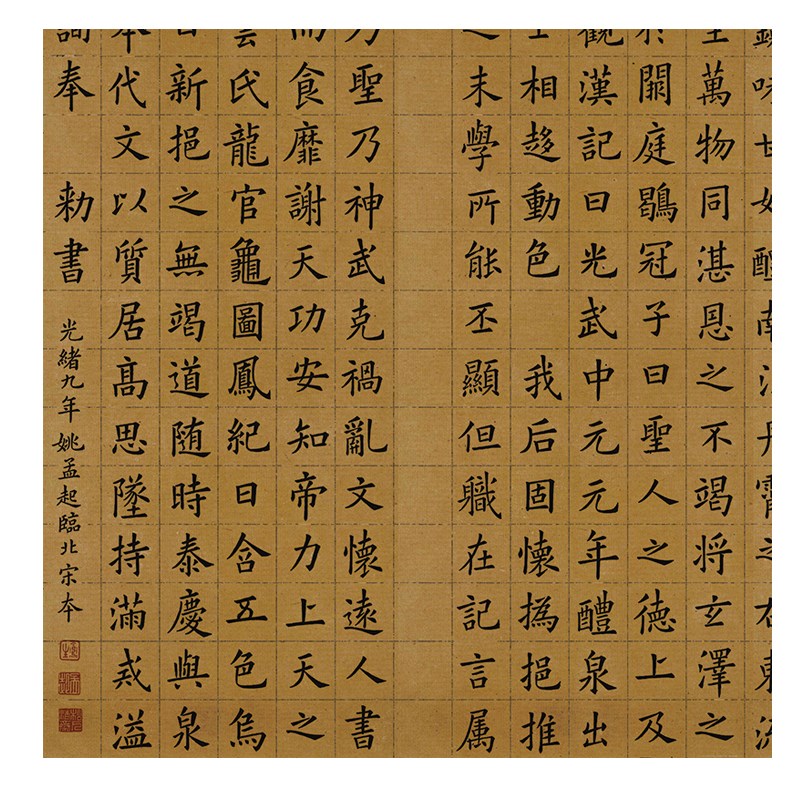 味甘如醴南注丹霄之右東流
生萬物同湛恩之不竭將玄澤之
於闕庭鶡冠子曰聖人之德上及
觀漢記曰光武中元元年醴泉出
士相趍動色 我后固懷撝挹推
之末學所能丕顯但職在記言属
乃聖乃神武克禍亂文懷遠人書
而食靡謝天功安知帝力上天之
雲氏龍官龜圖鳳紀日含五色烏
日新挹之無竭道随時泰慶與泉
本代文以質居高思墜持滿戒溢
詢奉 勅書
光緒九年姚孟起臨北宋本